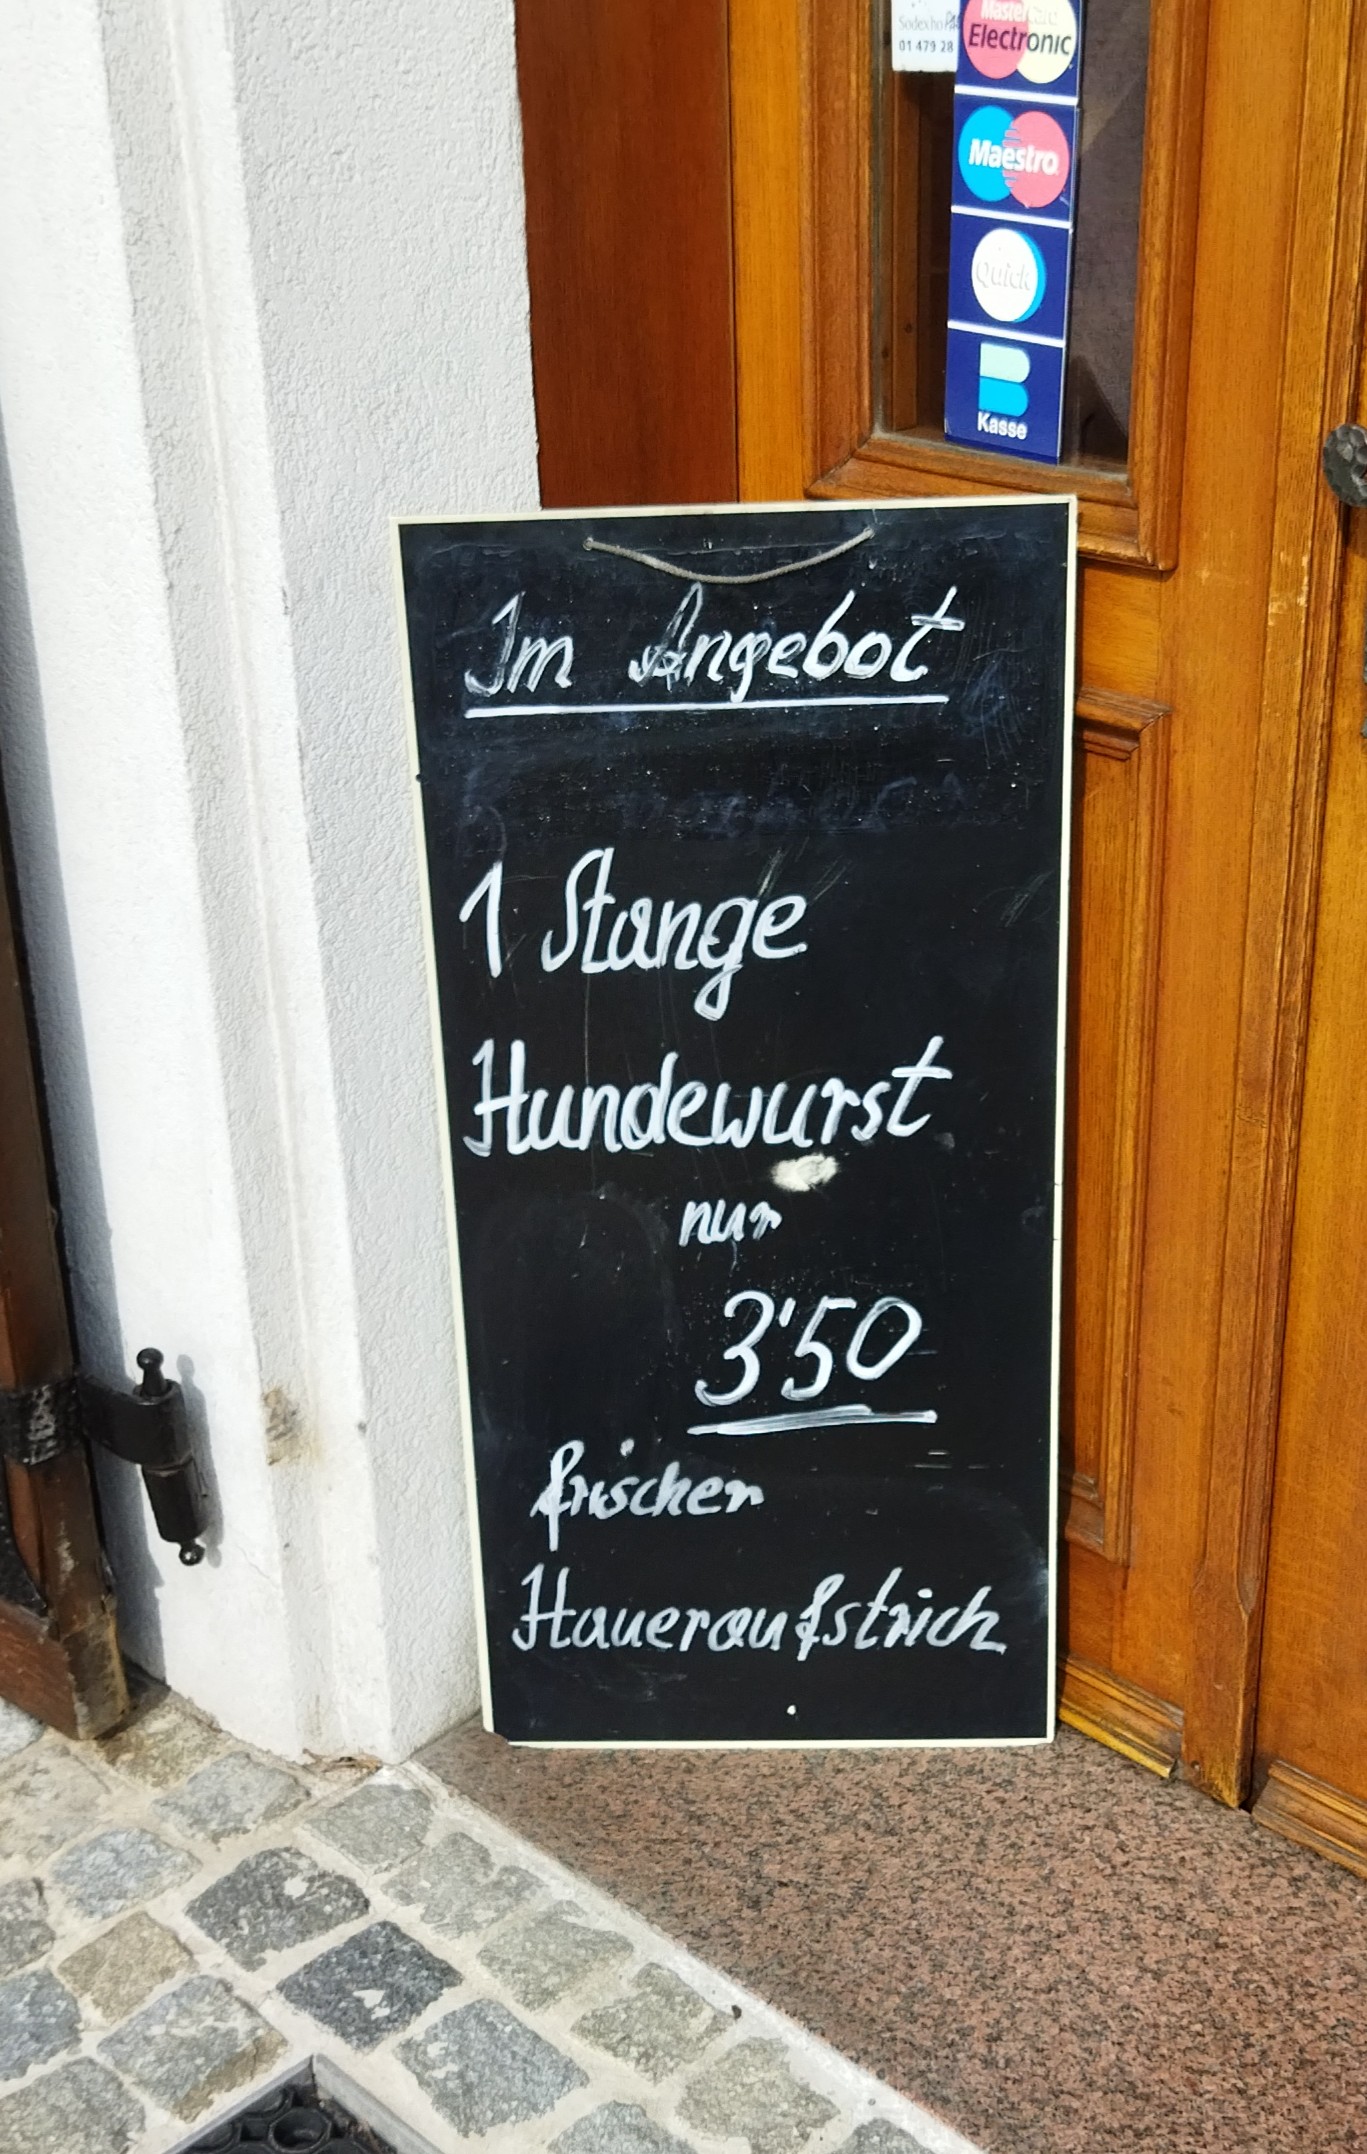 Sodexho
01 479 28
MasterCard
Electronic
Maestro
Quick
B
Kasse
Im Angebot
1 Stange
Hundewurst
nur
3'50
frischer
Haueraufstrich